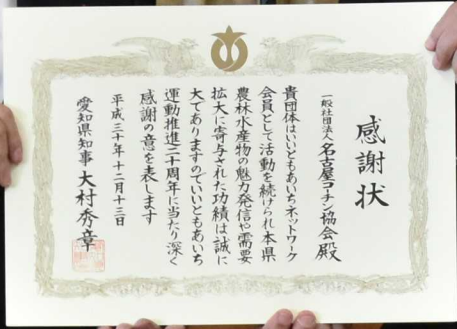 感謝状
一般社団法人名古屋コーチン協会殿
貴団体はいいともあいちネットワーク
会員として活動を続けられ本県
農林水産物の魅力発信や需要
拡大に寄与された功績は誠に
大でありますのでいいともあいち
運動推進二十周年に当たり深く
感謝の意を表します
平成三十年十二月十三日
愛知県知事 大村秀章